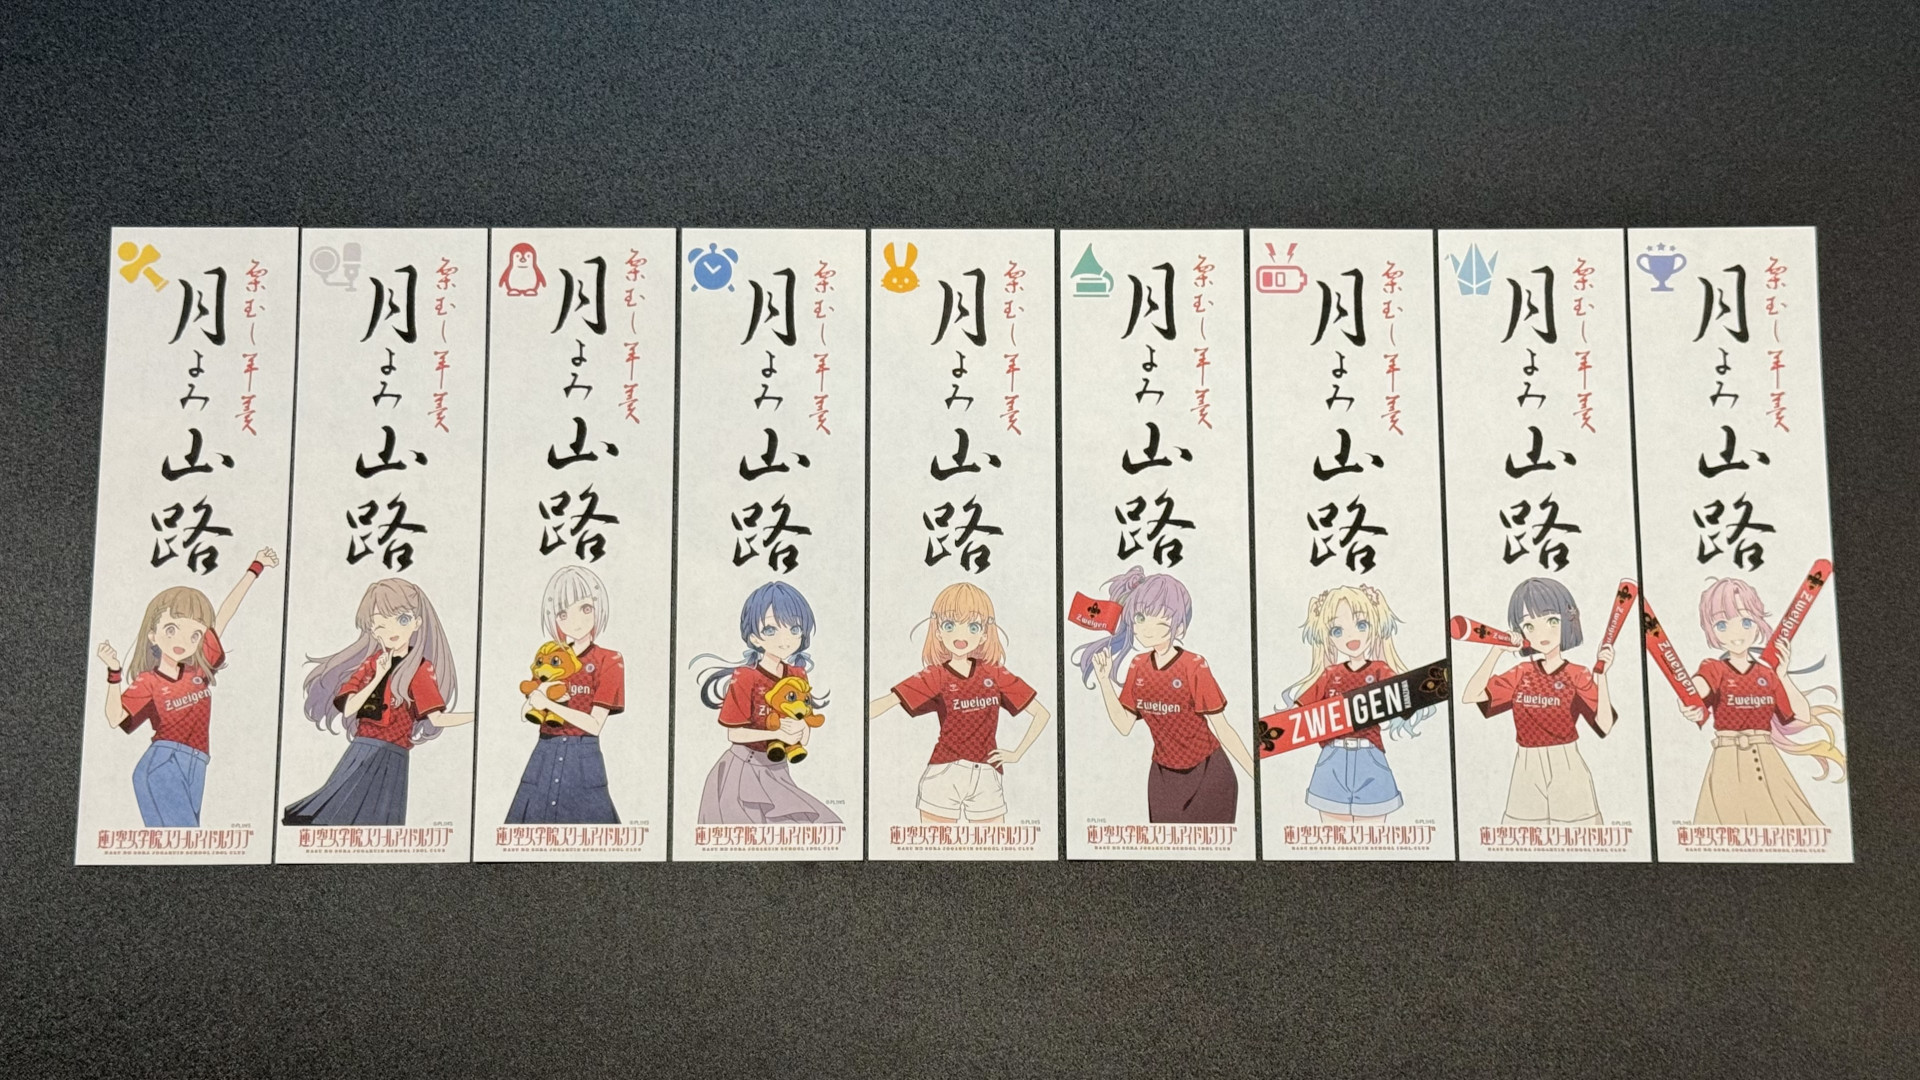 栗むし羊羹
月よみ山路
Zweigen
©PL!HS
蓮ノ空女学院スクールアイドルクラブ
HASU NO SORA JOGAKUIN SCHOOL IDOL CLUB
栗むし羊羹
月よみ山路
©PL!HS
蓮ノ空女学院スクールアイドルクラブ
HASU NO SORA JOGAKUIN SCHOOL IDOL CLUB
栗むし羊羹
月よみ山路
igen
蓮ノ空女学院スクールアイドルクラブ
HASU NO SORA JOGAKUIN SCHOOL IDOL CLUB
栗むし羊羹
月よみ山路
©PL!HS
蓮ノ空女学院スクールアイドルクラブ
HASU NO SORA JOGAKUIN SCHOOL IDOL CLUB
栗むし羊羹
月よみ山路
Zweigen
©PL!HS
蓮ノ空女学院スクールアイドルクラブ
HASU NO SORA JOGAKUIN SCHOOL IDOL CLUB
栗むし羊羹
月よみ山路
Zweigen
Zweigen
©PL!HS
蓮ノ空女学院スクールアイドルクラブ
HASU NO SORA JOGAKUIN SCHOOL IDOL CLUB
栗むし羊羹
月よみ山路
ZWEIGEN
©PL!HS
蓮ノ空女学院スクールアイドルクラブ
HASU NO SORA JOGAKUIN SCHOOL IDOL CLUB
栗むし羊羹
月よみ山路
Zwei
Zweigen
Zweigen
©PL!HS
蓮ノ空女学院スクールアイドルクラブ
HASU NO SORA JOGAKUIN SCHOOL IDOL CLUB
栗むし羊羹
月よみ山路
Zweigen
Zweigen
Zweigen
©PL!HS
蓮ノ空女学院スクールアイドルクラブ
HASU NO SORA JOGAKUIN SCHOOL IDOL CLUB